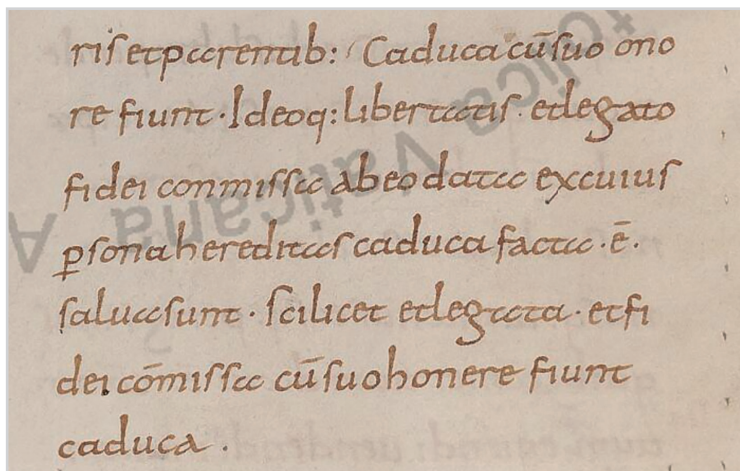 ris et parentib: Caduca cū suo ono
re fiunt · Ideoq: libertatis · et legato
fidei conmissa ab eo data ex cuius
ꝑsona hereditas caduca facta · ē ·
salua sunt · scilicet et legata · et fi
dei cōmissa cū suo honere fiunt
caduca ·